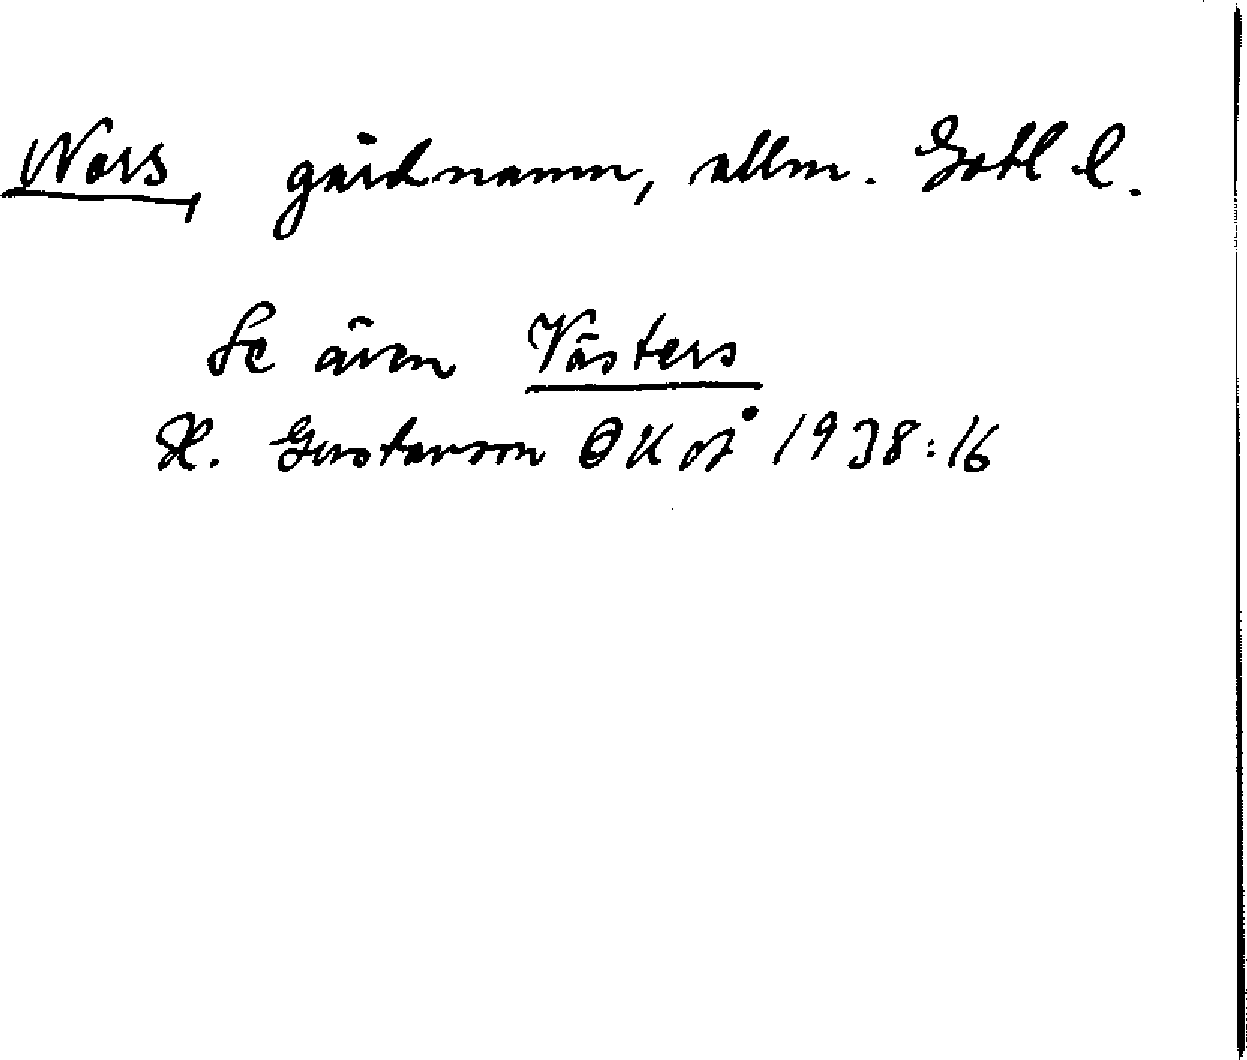 Nors, gårdnamn, allm. Gotl l.
Se även Västers
H. Gustavson OKoÅ 1938:16